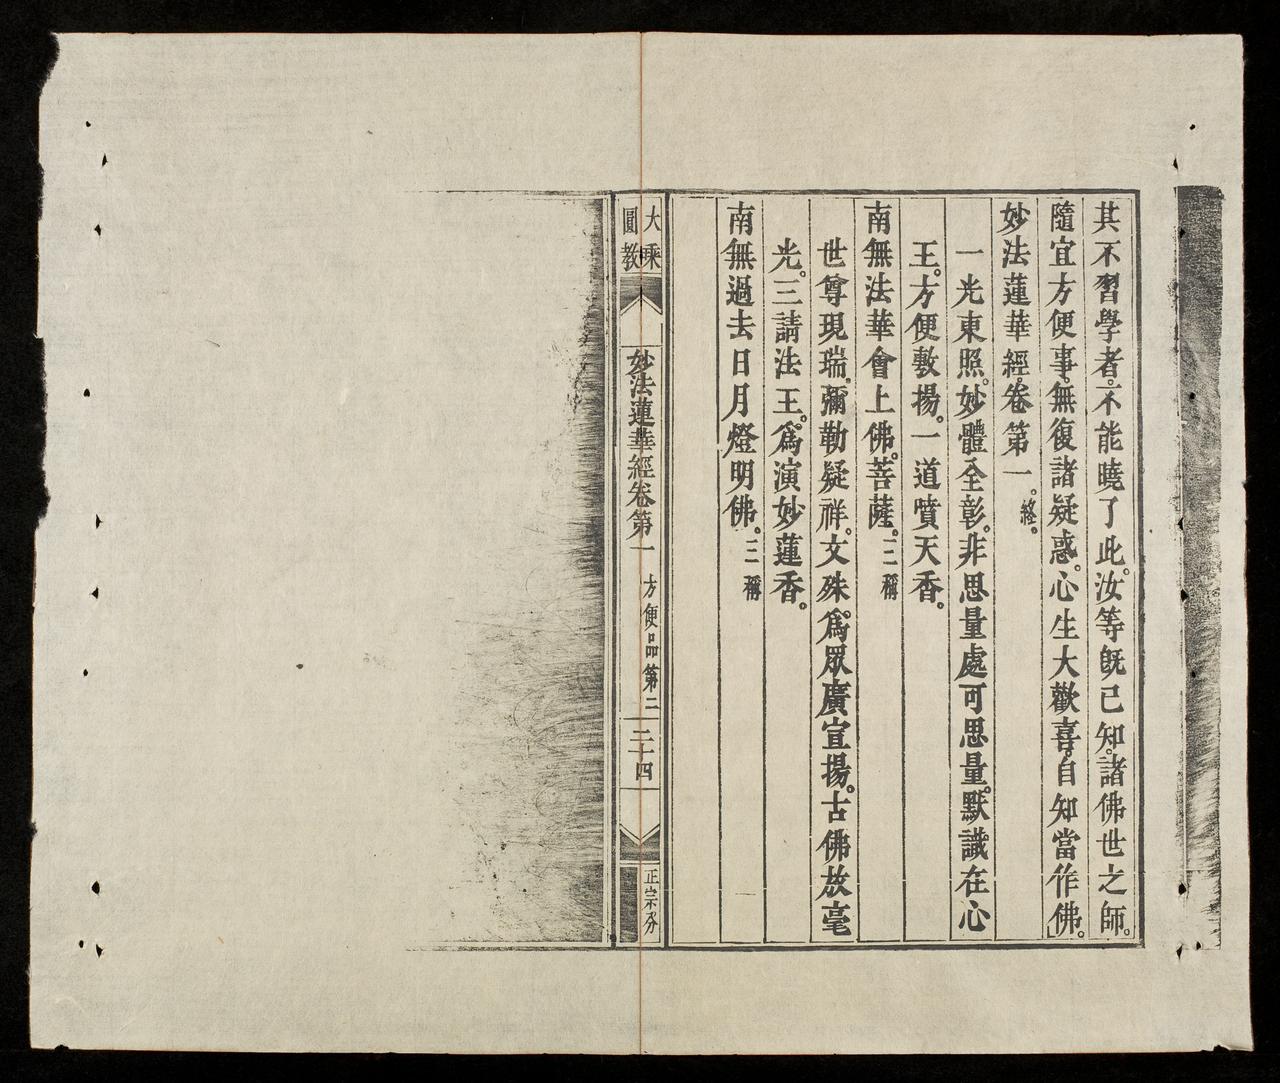 其不習學者。不能曉了此。汝等既已知。諸佛世之師。
隨宜方便事。無復諸疑惑。心生大歡喜。自知當作佛。」
妙法蓮華經卷第一。終。
一光東照。妙體全彰。非思量處可思量。默識在心
王。方便敷揚。一道噴天香。
南無法華會上佛。菩薩。三稱
世尊現瑞。彌勒疑祥。文殊。為眾廣宣揚。古佛放毫
光。三請法王。為演妙蓮香。
南無過去日月燈明佛。三稱
大乘
圓教
妙法蓮華經卷第一
方便品第二
二十四
正宗分